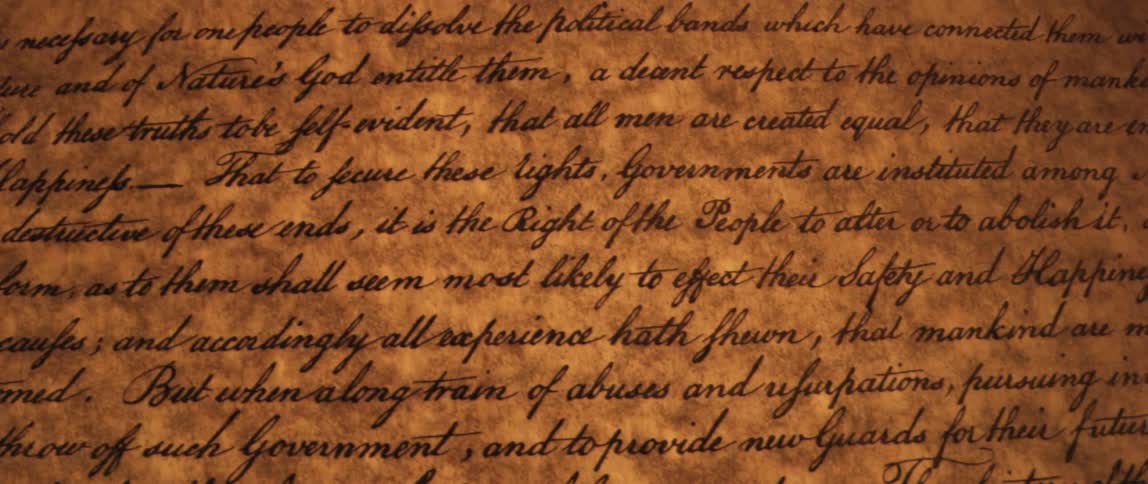 neceſsary for one people to diſsolve the political bands which have connected them
and of Nature's God entitle them, a decent respect to the opinions of mank
old these truths to be ſelf-evident, that all men are created equal, that they are
appineſs.— That to ſecure these rights, Governments are instituted among
destructive of these ends, it is the Right of the People to alter or to abolish it,
form, as to them shall seem most likely to effect their Safety and Happin
cauſes; and accordingly all experience hath ſhewn, that mankind are
med. But when a long train of abuses and uſurpations, pursuing in
throw off such Government, and to provide new Guards for their futur